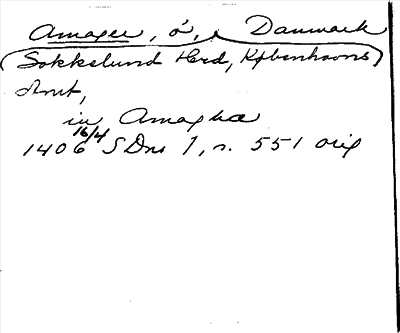 Amager, ö, Danmark
(Sokkelund Hrd, Köbenhavns)
Amt,
in Amaghæ
1406 16/4 SDns 1, n. 551 orig